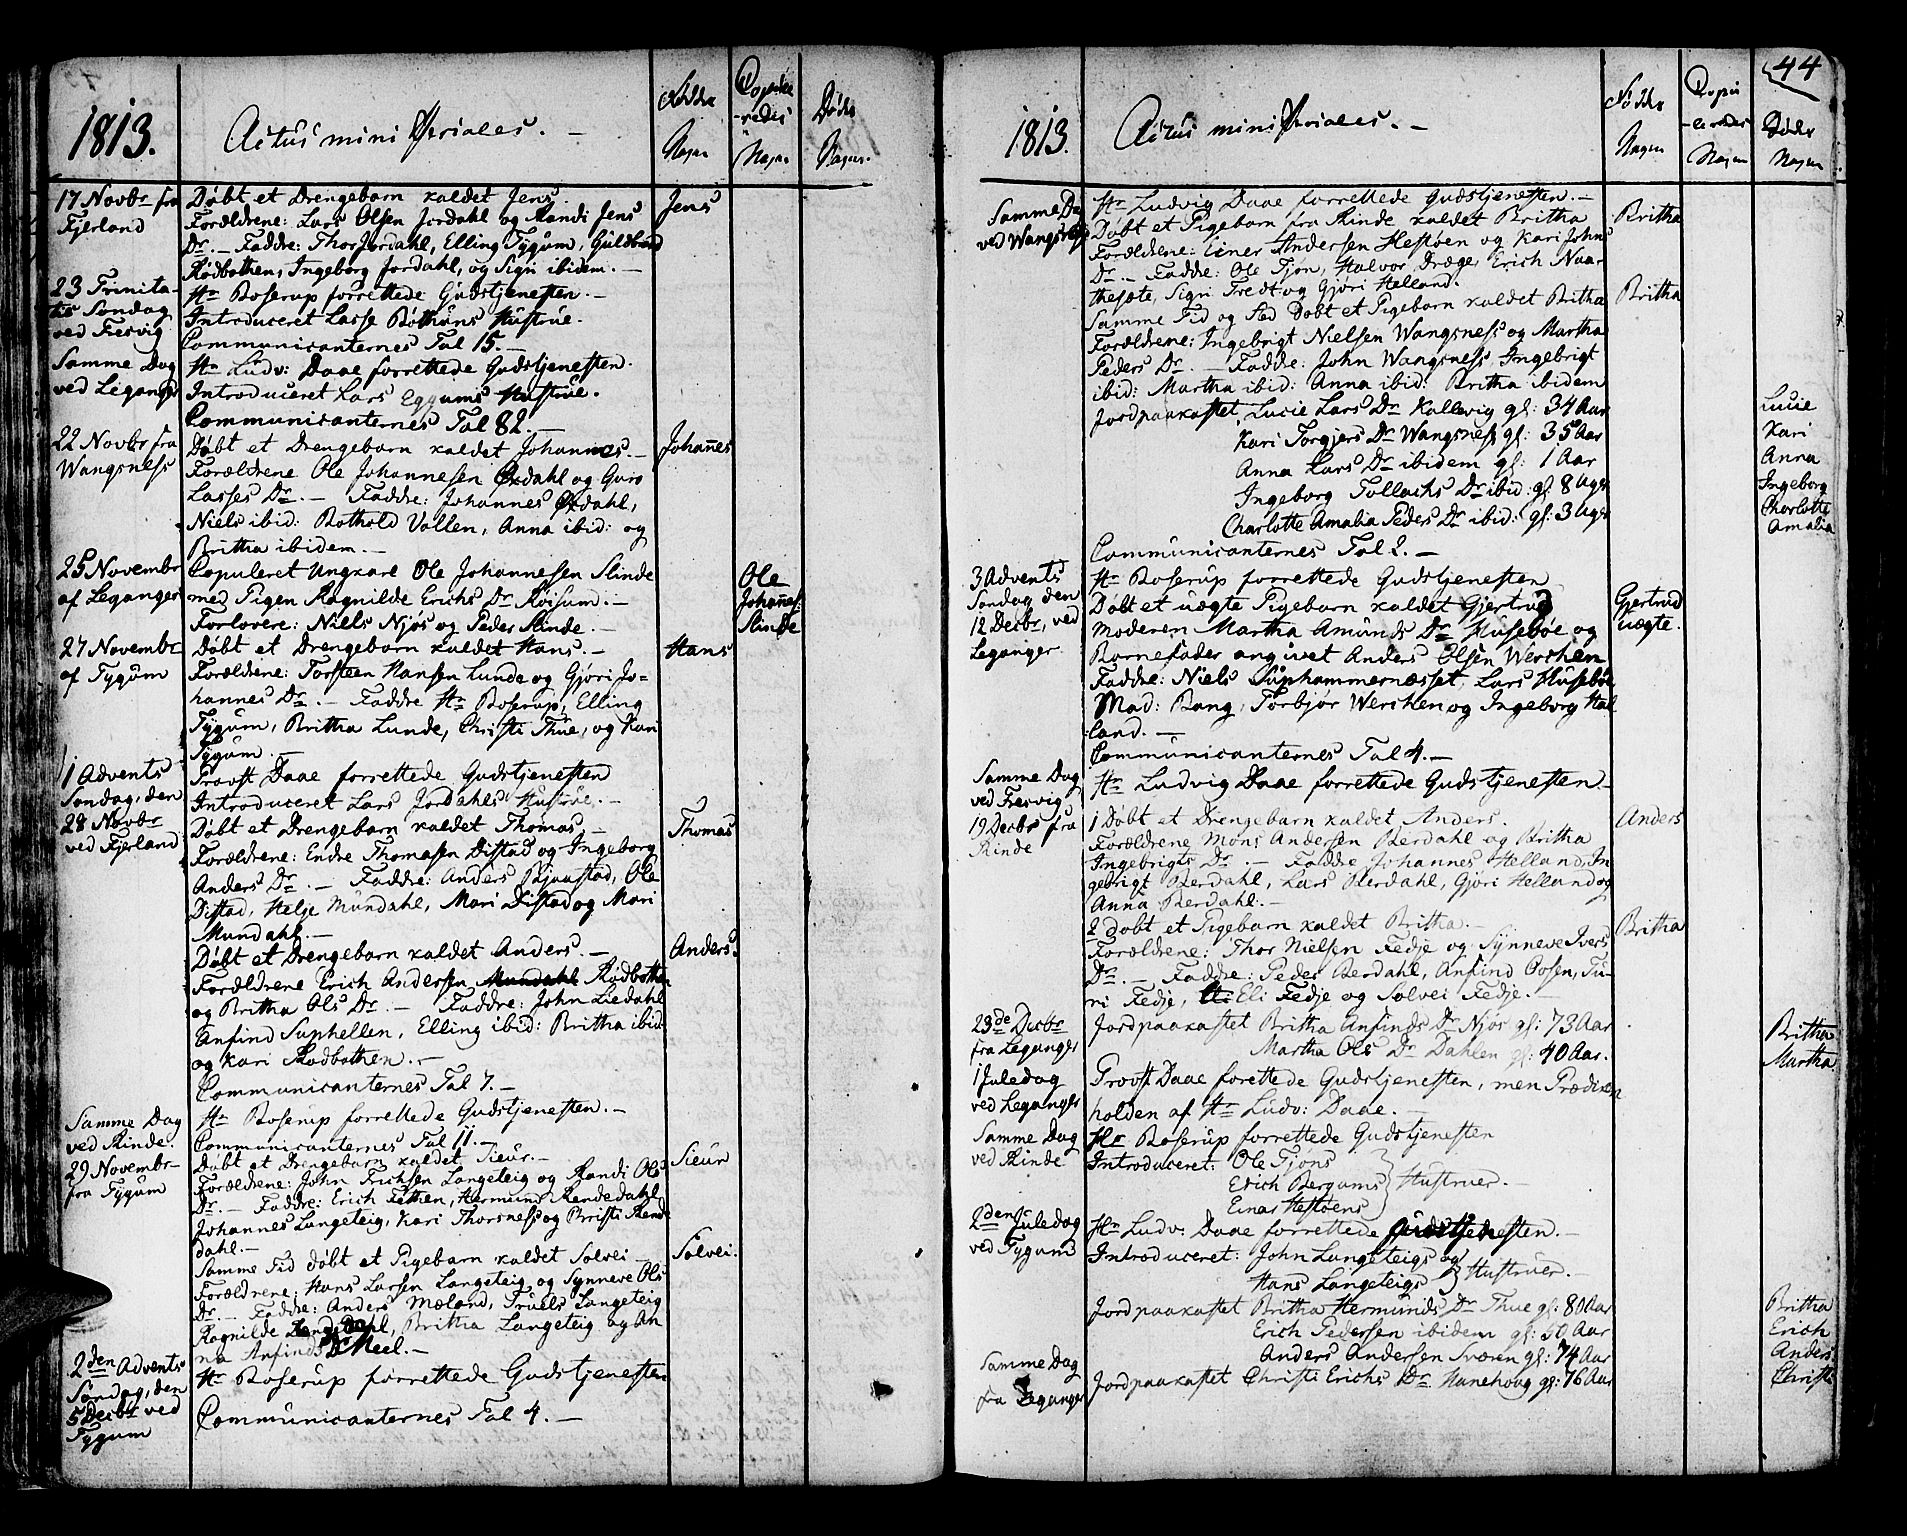 1813.
Actus ministeriales. —
Fødde Nagn
Copule-redes Nagn
Døde Nagn.
17 Novbr fra Fjerland
Døbt et Drengebarn kaldet Jens.
Jens
Forældrene: Lars Olsen Jordahl og Randi Jens
Dr. — Faddre: Thor Jordahl, Elling Tygum, Guldbrand
Rødbothen, Ingeborg Jordahl, og Sigri ibidem. —
23 Trinita-tis Søndag ved Fresvig
Hr Boserup forrettede Gudstjenesten. —
Introduceret Lasse Bøthuns Hustrue.
Communicanternes Tal 15. —
Samme Dag ved Leganger
Hr Ludv: Daae forrettede Gudstjenesten.
Introduceret Lars Eggums Hustrue.
Communicanternes Tal 82. —
22 Novbr fra Wangsness
Døbt et Drengebarn kaldet Johannes. —
Johañes
Forældrene Ole Johannesen Øxdahl og Guro
Lasses Dr. — Faddre: Johannes Øxdahl,
Niels ibid: Bothold Vallen, Anna ibid: og
Britha ibidem. —
25 Novembr af Leganger
Copuleret Ungkarl Ole Johannesen Slinde
Ole Johañes: Slinde
med Pigen Ragnilde Erichs Dr Røisum. —
Forlovere: Niels Njøs og Peder Slinde. —
27 Novembr af Tygum
Døbt et Drengebarn kaldet Hans. —
Hans
Forældrene: Torsteen Hansen Lunde og Gjøri Jo-
hannes Dr. — Faddre Hr Boserup, Elling
Tygum, Britha Lunde, Christi Thue, og Kari
Tygum. —
1 Advents Søndag, den 28 Novbr ved Fjerland
Provst Daae forrettede Gudstjenesten
Introduceret Lars Jordahls Hustrue. —
Døbt et Drengebarn kaldet Thomas —
Thomas
Forældrene: Endre Thomasen Distad og Ingeborg
Anders Dr. — Faddre: Anders Bjaastad, Ole
Distad, Helje Mundahl, Mari Distad og Mari
Mundahl. —
Døbt et Drengebarn kaldet Anders. —
Anders.
Forældrene Erich Andersen Mundahl Rødbothen
og Britha Ols Dr. — Faddre: John Liedahl
Anfind Suphellen, Elling ibid: Britha ibid
og Kari Rødbothen. —
Communicanternes Tal 7. —
Samme Dag ved Rinde.
Hr Boserup forrettede Gudstjenesten. —
Communicanternes Tal 11. —
29 Novembr fra Tygum
Døbt et Drengebarn kaldet Sieur. —
Sieur
Forældrene: John Erichsen Langeteig og Randi Ols
Dr. — Faddre: Erich Fethen, Hermund Rendedahl
Johannes Langeteig, Kari Thorsness og Britha Rende
dahl. —
Samme Tid døbt et Pigebarn kaldet Solvei —
Solvei.
Forældrene: Hans Larsen Langeteig og Synneve Ols
Dr — Faddre: Anders Mæland, Truels Langeteig
Ragnilde Rendedahl, Britha Langeteig og An
na Anfinds Dr Neel. —
2den Advents Søndag, den 5 Decbr ved Tygum
Hr Boserup forrettede Gudstjenesten
Communicanternes Tal 4. —
44
1813.
Actus ministeriales. —
Fødde Nagn
Copu-leredes Nagn
Døde Nagn
Samme Dag ved Wangsness
Hr Ludvig Daae forrettede Gudstjenesten. —
Døbt et Pigebarn fra Rinde kaldet Britha
Britha
Forældrene: Einer Andersen Hestøen og Kari Johns
Dr. — Faddre: Ole Tjøn, Halvor Dræge, Erich Naar
thesæte, Sigri Tredt og Gjøri Helland.
Samme Tid og Sted døbt et Pigebarn kaldet Britha
Britha
Forældrene: Ingebrigt Nielsen Wangsness og Martha
Peders Dr. — Faddre: John Wangsness Ingebrigt
ibid: Martha ibid: Anna ibid: Britha ibidem
Jordpaakastet Lucie Lars Dr Kallevig gl: 34 Aar
Lucie
Kari Torgjers Dr Wangsness gl: 35 Aar
Kari
Anna Lars Dr ibidem gl: 1 Aar
Anna
Ingeborg Tollachs Dr ibid: gl: 8 Uger
Ingeborg
Charlotte Amalia Peders Dr ibid: gl: 3 Uger
Charlotte Amalia
Communicanternes Tal 2. —
3 Advents Søndag den 12 Decbr, ved Leganger
Hr Boserup forrettede Gudstjenesten
Døbt et uægte Pigebarn kaldet Gjertrud
Gjertrud uægte.
Moderen Martha Amunds Dr Husebøe og
Barnefader angivet Anders Olsen Werchen
Faddre: Niels Suphammernæsset, Lars Husebøe
Mad: Bang, Torbjør Werchen og Ingeborg Hal
land. —
Communicanternes Tal 4. —
Samme Dag ved Fresvig
Hr Ludvig Daae forrettede Gudstjenesten. —
19 Decbr fra Rinde
1 Døbt et Drengebarn kaldet Anders.
Anders
Forældrene Mons Andersen Berdahl og Britha
Ingebrigts Dr. — Faddre Johannes Helland, In
gebrigt Berdahl, Lars Berdahl, Gjøri Helland og
Anna Berdahl. —
2 døbt et Pigebarn kaldet Britha. —
Britha
Forældrene: Thor Nielsen Fedje og Synneve Ivers
Dr. — Faddre: Peder Berdahl, Anfind Bosen, Tu-
ri Fedje, Eli Fedje og Solvei Fedje. —
23de Decbr fra Leganger
Jordpaakastet Britha Anfinds Dr Njøs gl: 73 Aar
Britha
Martha Ols Dr Dahlen gl: 40 Aar.
Martha
1 Juledag ved Leganger
Provst Daae forettede Gudstjenesten, men Prædiken
holden af Hr Ludv: Daae. —
Samme Dag ved Rinde
Hr Boserup forrettede Gudstjenesten
Introduceret: Ole Tjøns
Erich Bergums } Hustruer. —
Einar Hestøens
2den Juledag ved Tygum
Hr Ludv: Daae forrettede Gudstjenesten. —
Introduceret: John Langeteigs og
Hans Langeteigs } Hustruer. —
Jordpaakastet Britha Hermunds Dr Thue gl: 80 Aar
Britha
Erich Pedersen ibidem gl: 50 Aar
Erich
Anders Andersen Sværen gl: 74 Aar
Anders
Samme Dag fra Leganger
Jordpaakastet Christi Erichs Dr Hanehoug gl: 76 Aar
Christi